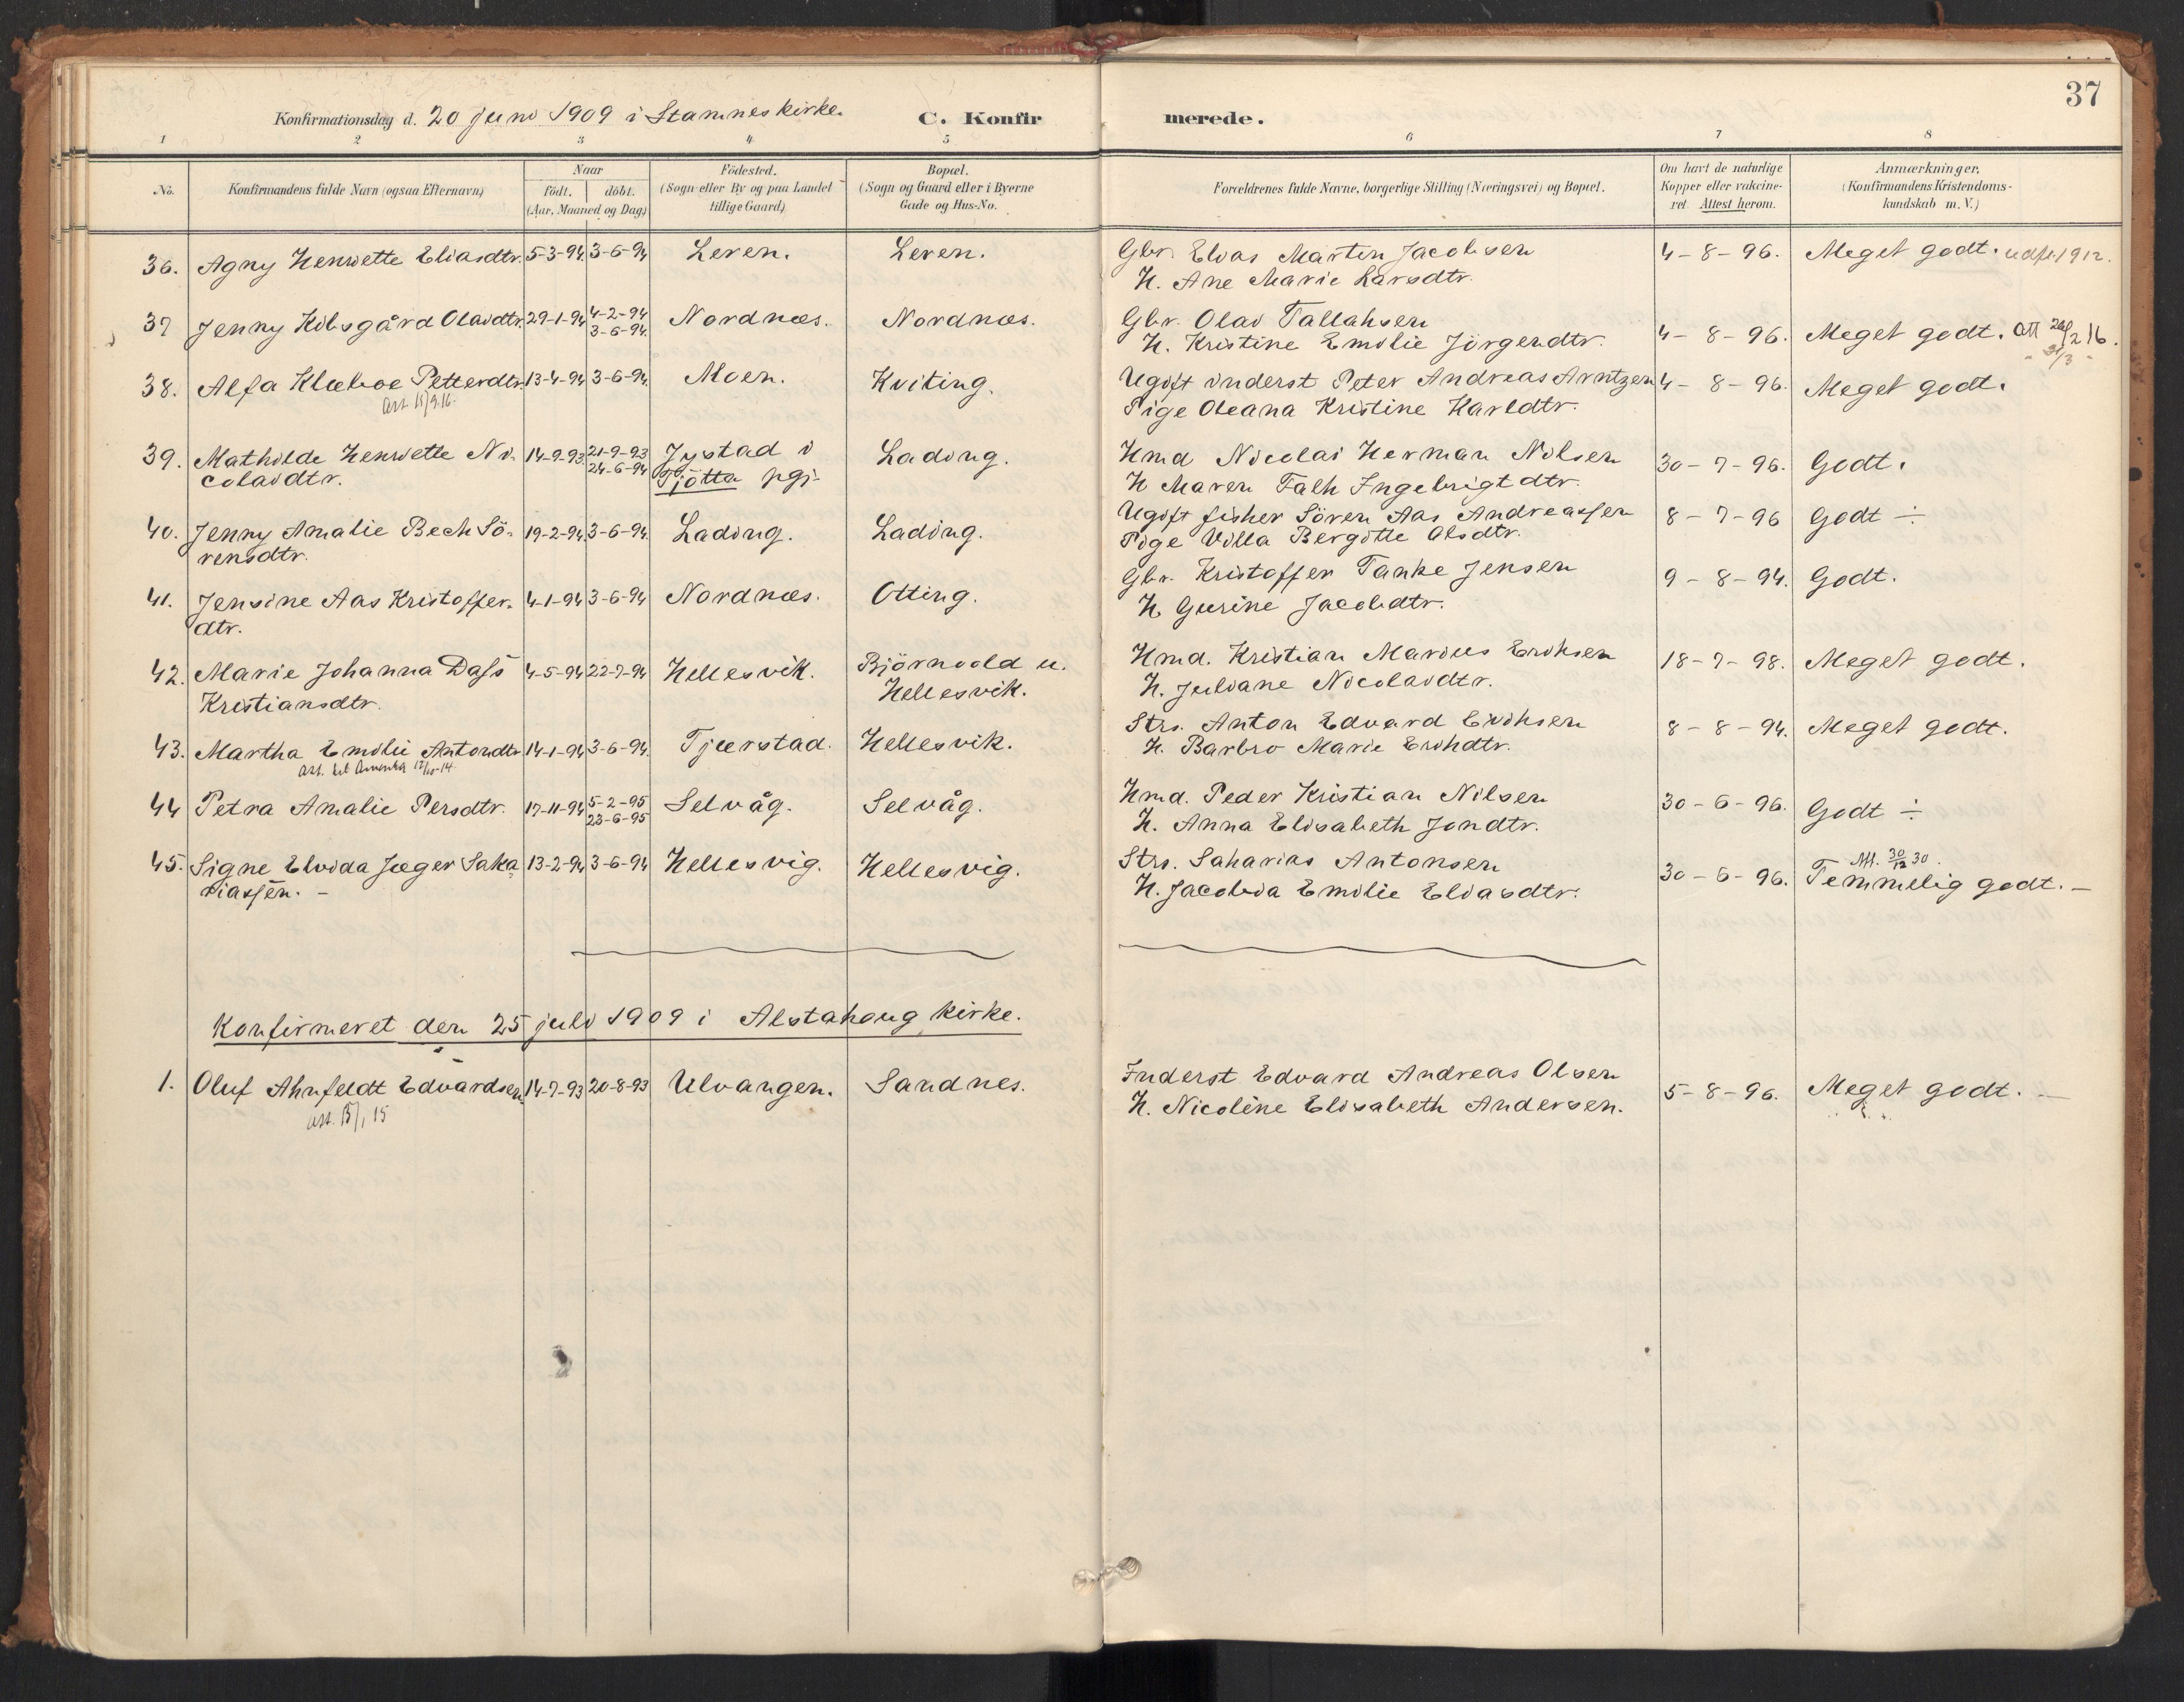 37
Konfirmationsdag d. 20 juni 1909 i Stamnes kirke. C. Konfirmerede.
1 2 3 4 5 6 7 8
No.
Konfirmandens fulde Navn (ogsaa Efternavn)
Naar
födt. döbt.
(Aar, Maaned og Dag)
Födested.
(Sogn eller By og paa Landet
tillige Gaard)
Bopæl.
(Sogn og Gaard eller i Byerne
Gade og Hus-No.
Forældrenes fulde Navne, borgerlige Stilling (Næringsvei) og Bopæl.
Om havt de naturlige
Kopper eller vakcine-
ret. Attest herom.
Anmærkninger.
(Konfirmandens Kristendoms-
kundskab m. V.)
36. Agny Henriette Eliasdtr. 5-3-94. 3-6-94 Leren. Leren. Gbr. Elias Martin Jacobsen 4-8-96. Meget godt. udfl. 1912.
H. Ane Marie Larsdtr.
37 Jenny Kilsgård Olaidtr. 29-1-94 4-2-94 Nordnæs. Nordnæs. Gbr. Olai Tallaksen
3-6-94. H. Kristine Emilie Jörgendtr. 4-8-96. Meget godt. Att 26/2 16.
" 31/3 "
38. Alfa Klæboe Petterdtr. 13-4-94 3-6-94. Moen. Kviting. Ugift inderst Peter Andreas Arntzen 4-8-96. Meget godt.
Att. 15/9.16. Pige Oleana Kristine Karldtr.
39. Mathilde Henriette Ni- 14-9-93 21-9-93 Jystad i Lading. Hmd Nicolai Herman Nilsen 30-7-96. Godt.
colaidtr. 24-6-94 Tjötta pgj. H Maren Falk Ingebrigtdtr.
40. Jenny Amalie Bech Sö- 19-2-94. 3-6-94. Lading. Lading. Ugift fisker Sören Aas Andreassen 8-7-96 Godt ÷
rensdtr. Pige Villa Bergitte Olsdtr.
41. Jensine Aas Kristoffer- 4-1-94 3-6-94 Nordnæs. Otting. Gbr. Kristoffer Tanke Jensen 9-8-94. Godt.
dtr. H. Gurine Jacobdtr.
42. Marie Johanna Dass 4-5-94 22-7-94 Hellesvik. Björnvold u. Hmd. Kristian Marius Eriksen 18-7-98. Meget godt.
Kristiansdtr. Hellesvik. H. Juliane Nicolaidtr.
43. Martha Emilie Antondtr 14-1-94 3-6-94. Tjærstad. Hellesvik. Strs. Anton Edvard Eriksen 8-8-94. Meget godt.
Att. til Amerika 12/10-14 H. Barbro Marie Erikdtr.
44 Petra Amalie Persdtr. 17-11-94 5-2-95 Selvåg. Selvåg. Hmd. Peder Kristian Nilsen 30-6-96. Godt ÷
23-6-95 H. Anna Elisabeth Jondtr.
45. Signe Elvida Jæger Saka 13-2-94 3-6-94 Hellesvig. Hellesvig. Strs. Saharias Antonsen 30-6-96. Att. 30/12 30.
riassen. - H. Jacobia Emilie Eliasdtr. Temmelig godt. -
Konfirmeret den 25 juli 1909 i Alstahoug kirke.
1. Oluf Ahnfeldt Edvardsen. 14-7-93 20-8-93 Ulvangen. Sandnes. Inderst Edvard Andreas Olsen 5-8-96. Meget godt. -
Att. 15/1 15 H. Nicoline Elisabeth Andersen.